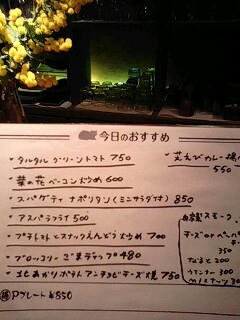 今日のおすすめ
・タルタルグリーントマト 750
・菜の花ベーコン炒め 600
・スパゲティナポリタン(ミニサラダ付) 850
・アスパラフライ 500
・プチトマトとスナックえんどう炒め 700
・ブロッコリーごまディップ 480
・北あかりポテトアンチョビチーズ焼 750
Pプレート ¥850
・芝えびカレー揚
550
自製スモーク
チーズorペッパ
350
なると 200
ウインナー 300
MIXナッツ 30